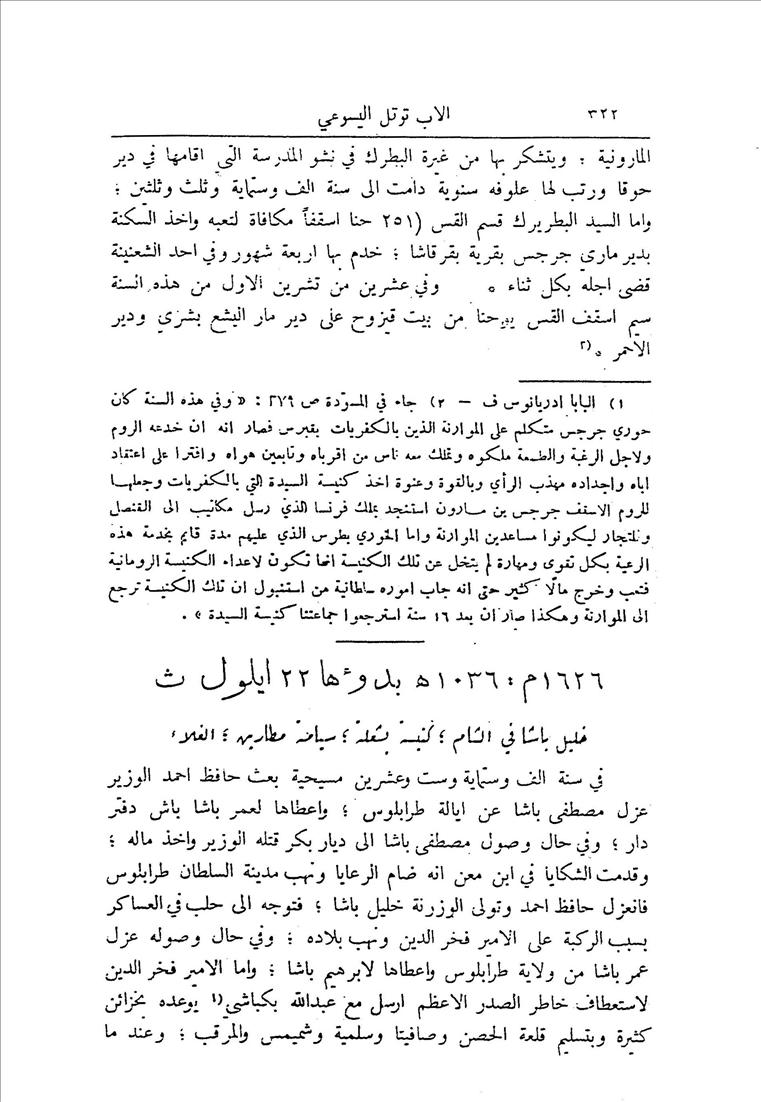 ٣٢٢ الاب توتل اليسوعي
المارونية ؛ ويتشكر بها من غيرة البطرك في نشو المدرسة التي اقامها في دير
حوقا ورتب لها علوفه سنوية دامت الى سنة الف وستماية وثلث وثلثين ؛
واما السيد البطريرك قسم القس (٢٥١ حنا اسقفاً مكافاة لتعبه واخذ السكنة
بدير ماري جرجس بقرية بقرقاشا ؛ خدم بها اربعة شهور وفي احد الشعنينة
قضى اجله بكل ثناء * وفي عشرين من تشرين الاول من هذه السنة
سيم اسقف القس يوحنا من بيت قيزوح على دير مار اليشع بشري ودير
الاحمر *٢)
١) البابا ادريانوس ف – ٢) جاء في المسوّدة ص ٢٧٩ : «وفي هذه السنة كان
خوري جرجس متكلم على الموارنة الذين بالكفريات بقبرس فصار انه ان خدعه الروم
ولاجل الرغبة والطمعة ملكوه وتملك معه ناس من اقرباه وتابعين هواه وافترا على اعتقاد
اباه واجداده مهذب الرأي وبالقوة وعنوة اخذ كنيسة السيدة التي بالكفريات وجعلها
للروم الاسقف جرجس بن مارون استنجد بملك فرنسا الذي رسل مكاتيب الى القنصل
وللتجار ليكونوا مساعدين الموارنة واما الخوري بطرس الذي عليهم مدة قايم بخدمة هذه
الرعية بكل تقوى ومهارة لم يتخل عن تلك الكنيسة انما تكون لاعداء الكنيسة الرومانية
فتعب وخرج مالًا كثير حتى انه جاب اموره سلطانية من استنبول ان تلك الكنيسة ترجع
الى الموارنة وهكذا صار ان بعد ١٦ سنة استرجعوا جماعتنا كنيسة السيدة » .
١٦٢٦م : ١٠٣٦ﻫ بدوءها ٢٢ ايلول ث
خليل باشا في الشام ؛ كنيسة بشعلة ؛ سيامة مطارين ؛ الغلاء
في سنة الف وستماية وست وعشرين مسيحية بعث حافظ احمد الوزير
عزل مصطفى باشا عن ايالة طرابلوس ؛ واعطاها لعمر باشا باش دفتر
دار ؛ وفي حال وصول مصطفى باشا الى ديار بكر قتله الوزير واخذ ماله ؛
وقدمت الشكايا في ابن معن انه ضام الرعايا ونهب مدينة السلطان طرابلوس
فانعزل حافظ احمد وتولى الوزرنة خليل باشا ؛ فتوجه الى حلب في العساكر
بسبب الركبة على الامير فخر الدين ونهب بلاده ؛ وفي حال وصوله عزل
عمر باشا من ولاية طرابلوس واعطاها لابرهيم باشا ؛ واما الامير فخر الدين
لاستعطاف خاطر الصدر الاعظم ارسل مع عبدالله بكباشي١) يوعده بخزائن
كثيرة وبتسليم قلعة الحصن وصافيتا وسلمية وشميمس والمرقب ؛ وعند ما